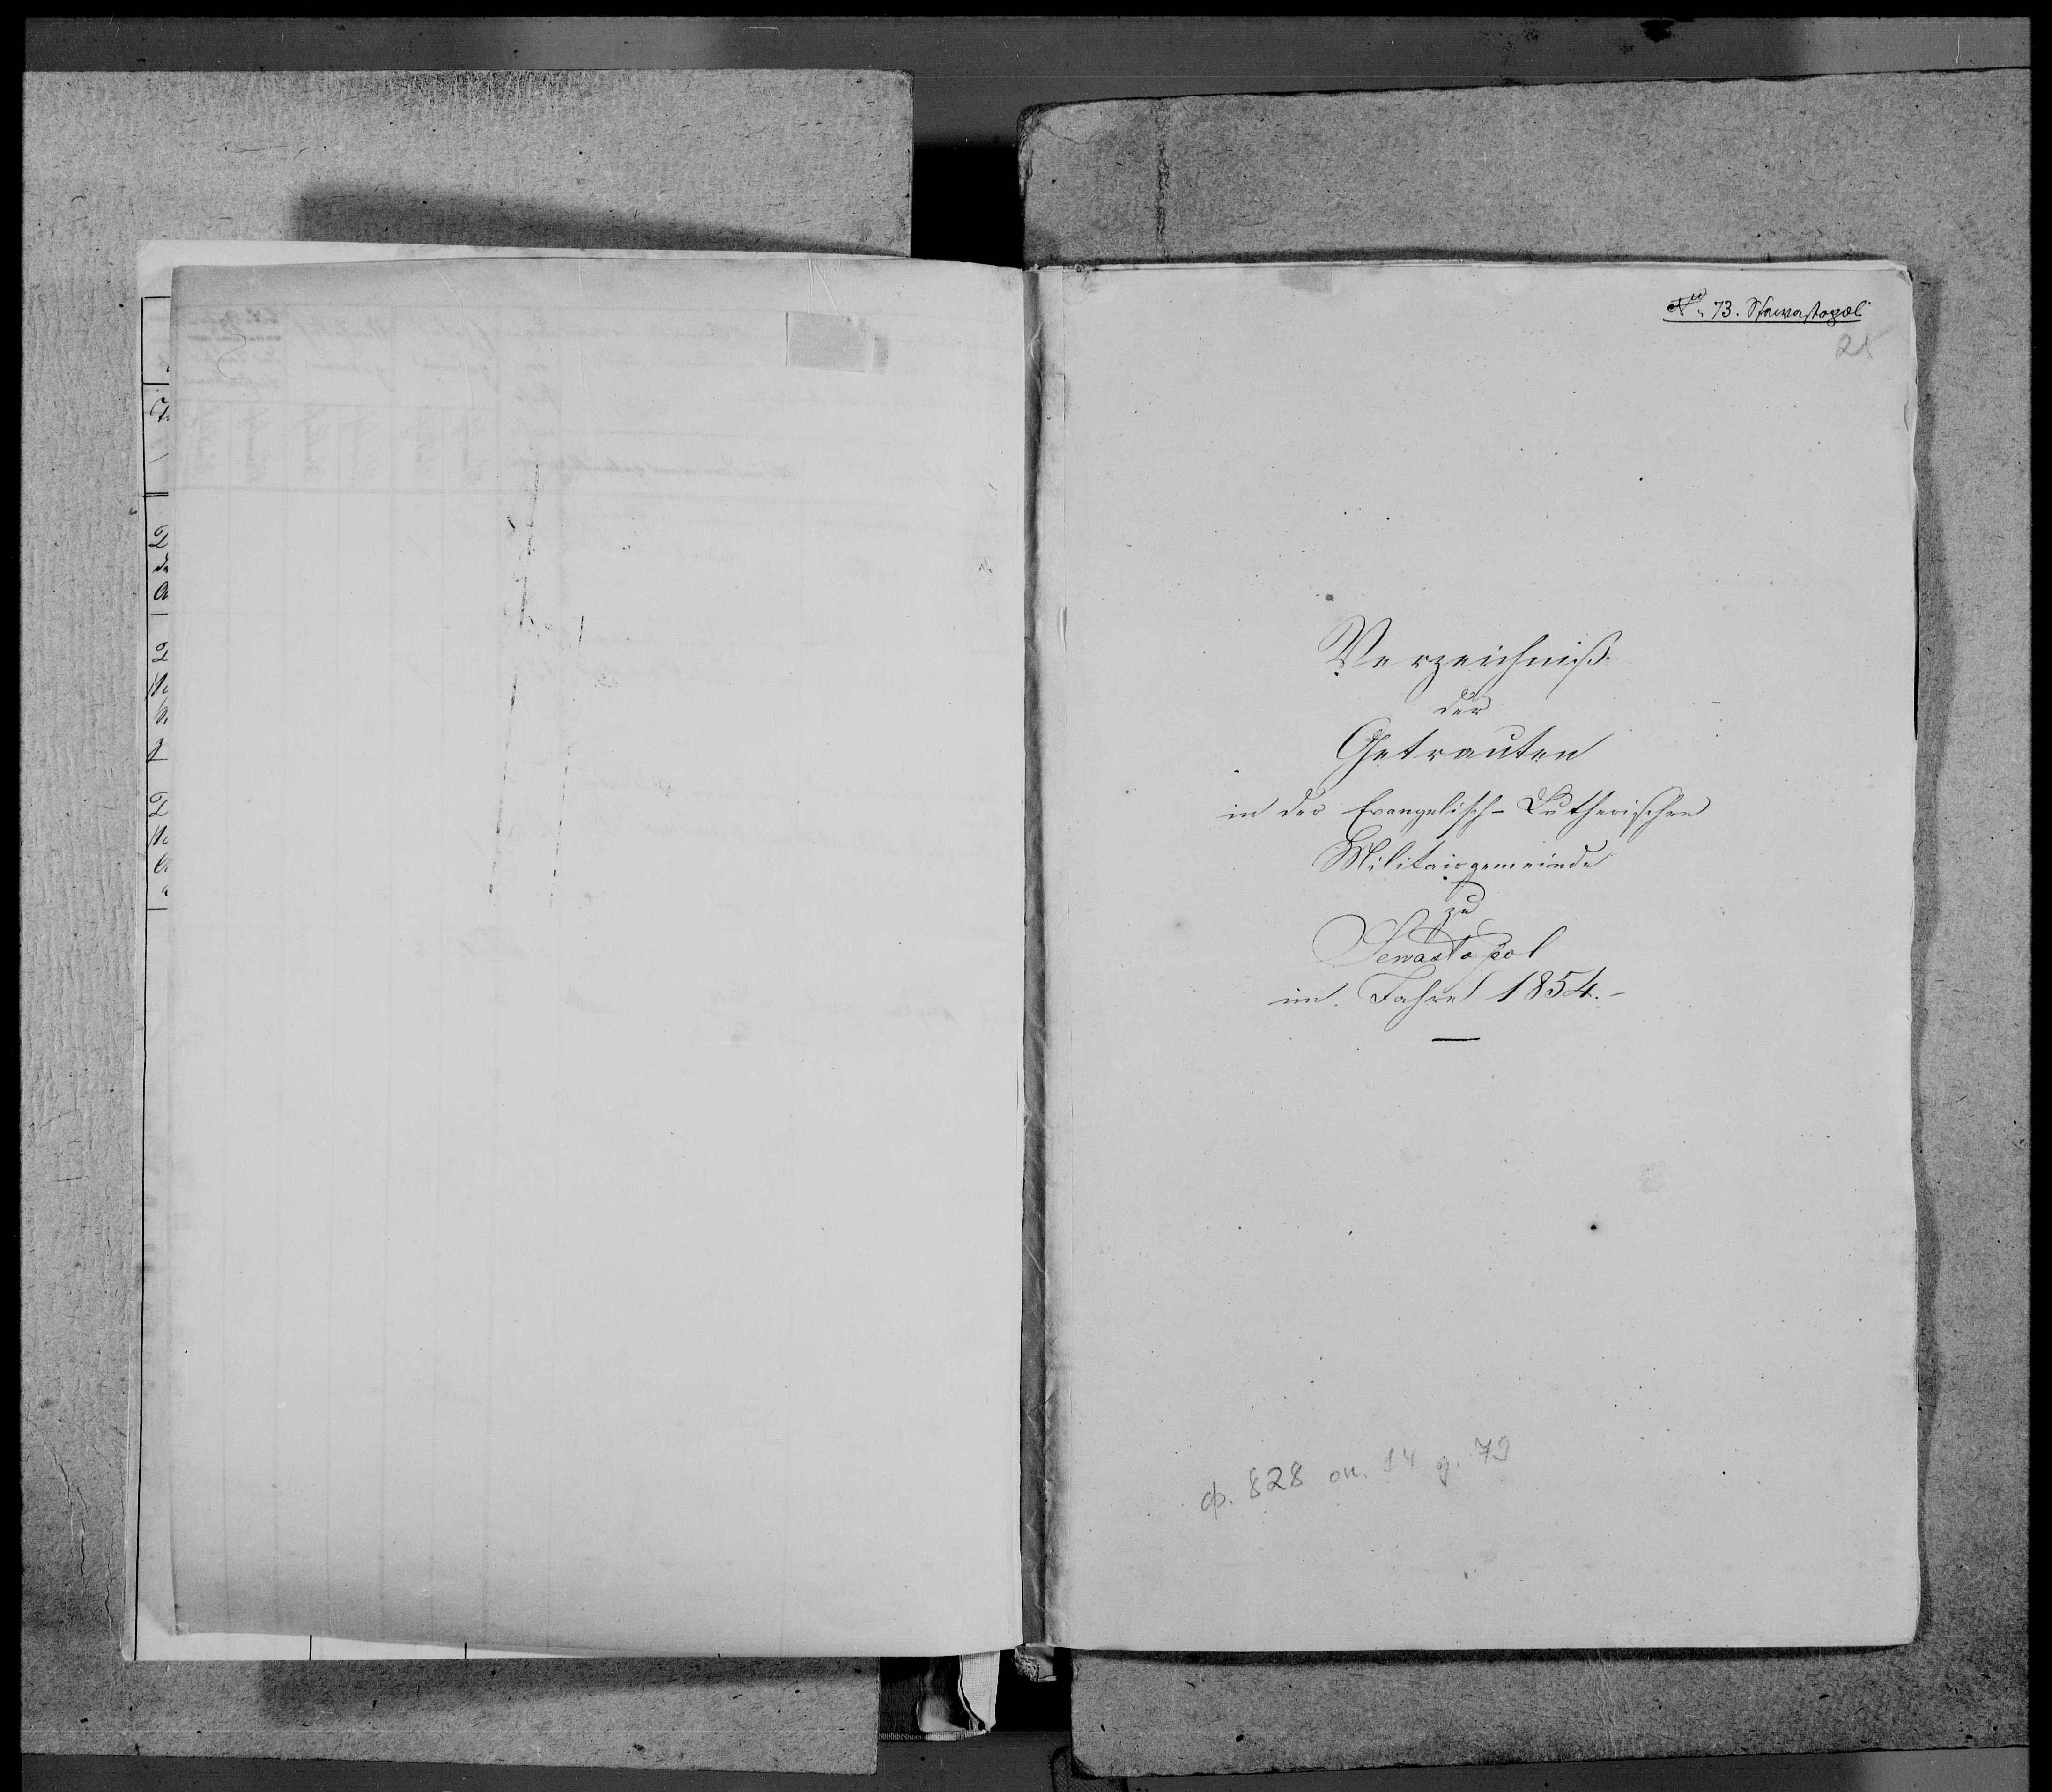 No 73. Sfewastopol
25
Verzeichniß
der
Getrauten
in der Evangelisch-Lutherischen
Militairgemeinde
zu
Sewastopol
im Jahre 1854.-
ф. 828 оп. 14 д. 79